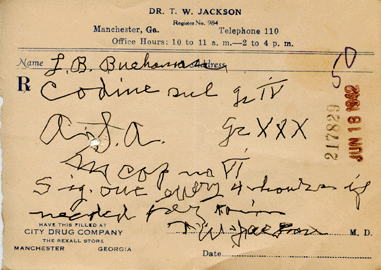 DR. T. W. JACKSON
Register No. 984
Manchester, Ga. Telephone 110
Office Hours: 10 to 11 a. m.—2 to 4 p. m.
Name L. B. Buchanan Address
50
R Codine sul gr IV
A.S.A. gr XXX
M cap no VI
Sig. one every 4 hours if
needed for pain
217829 JUN 18 1942
T W Jackson M. D.
HAVE THIS FILLED AT
CITY DRUG COMPANY
THE REXALL STORE
MANCHESTER GEORGIA
Date